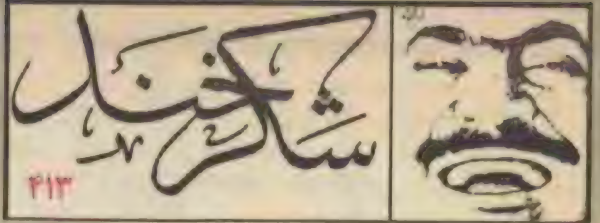 شکرخند
۴۱۳